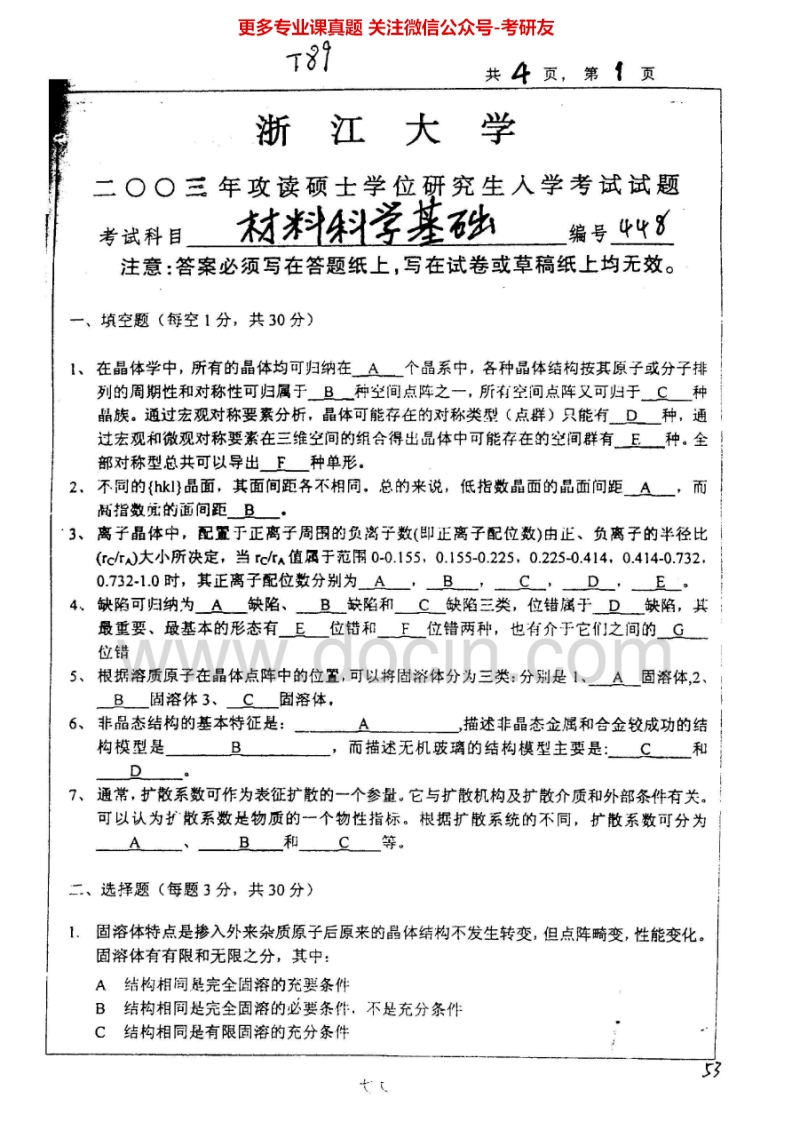 更多专业课真题 关注微信公众号-考研友
T89
共 4 页，第 1 页
浙 江 大 学
二〇〇三年攻读硕士学位研究生入学考试试题
考试科目 材料科学基础 编号 448
注意:答案必须写在答题纸上,写在试卷或草稿纸上均无效。
一、填空题（每空1分，共30分）
1、在晶体学中，所有的晶体均可归纳在__A__个晶系中，各种晶体结构按其原子或分子排
列的周期性和对称性可归属于__B__种空间点阵之一，所有空间点阵又可归于__C__种
晶族。通过宏观对称要素分析，晶体可能存在的对称类型（点群）只能有__D__种，通
过宏观和微观对称要素在三维空间的组合得出晶体中可能存在的空间群有__E__种。全
部对称型总共可以导出__F__种单形。
2、不同的{hkl}晶面，其面间距各不相同。总的来说，低指数晶面的晶面间距__A__，而
高指数 的面间距__B__。
3、离子晶体中，配置于正离子周围的负离子数(即正离子配位数)由正、负离子的半径比
(rC/rA)大小所决定，当 rC/rA 值属于范围 0-0.155，0.155-0.225，0.225-0.414，0.414-0.732，
0.732-1.0 时，其正离子配位数分别为__A__，__B__，__C__，__D__，__E__。
4、缺陷可归纳为__A__缺陷、__B__缺陷和__C__缺陷三类，位错属于__D__缺陷，其
最重要、最基本的形态有__E__位错和__F__位错两种，也有介于它们之间的__G__
位错
www.docin.com
5、根据溶质原子在晶体点阵中的位置,可以将固溶体分为三类:分别是 1、__A__固溶体,2、
__B__固溶体 3、__C__固溶体。
6、非晶态结构的基本特征是：__A__,描述非晶态金属和合金较成功的结
构模型是__B__，而描述无机玻璃的结构模型主要是:__C__和
__D__。
7、通常，扩散系数可作为表征扩散的一个参量。它与扩散机构及扩散介质和外部条件有关。
可以认为扩散系数是物质的一个物性指标。根据扩散系统的不同，扩散系数可分为
__A__、__B__和__C__等。
二、选择题（每题3分，共30分）
1. 固溶体特点是掺入外来杂质原子后原来的晶体结构不发生转变，但点阵畸变，性能变化。
固溶体有有限和无限之分，其中：
A 结构相同是完全固溶的充要条件
B 结构相同是完全固溶的必要条件，不是充分条件
C 结构相同是有限固溶的充分条件
53